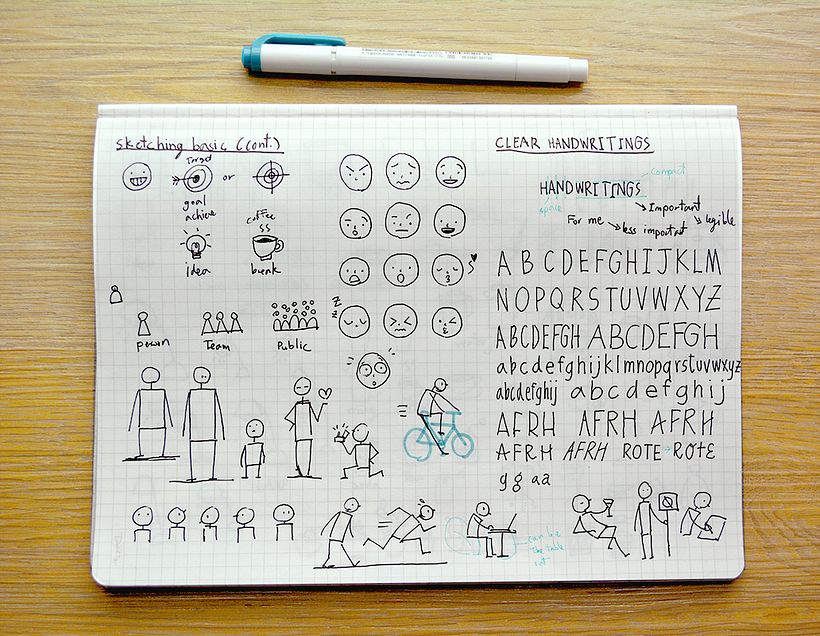 sketching basic (cont.)
Target
or
goal
achieve
coffee
idea
break
z
z
person
Team
Public
CLEAR HANDWRITINGS
compact
HANDWRITINGS
space
Important
For me
legible
less important
A B C D E F G H I J K L M
N O P Q R S T U V W X Y Z
ABCDEFGH ABCDEFGH
abcdefghijklmnopqrstuvwxyz
abcdefghij abcdefghij
AFRH AFRH AFRH
AFRH AFRH ROTE ROTE
g g a a
can be
the table